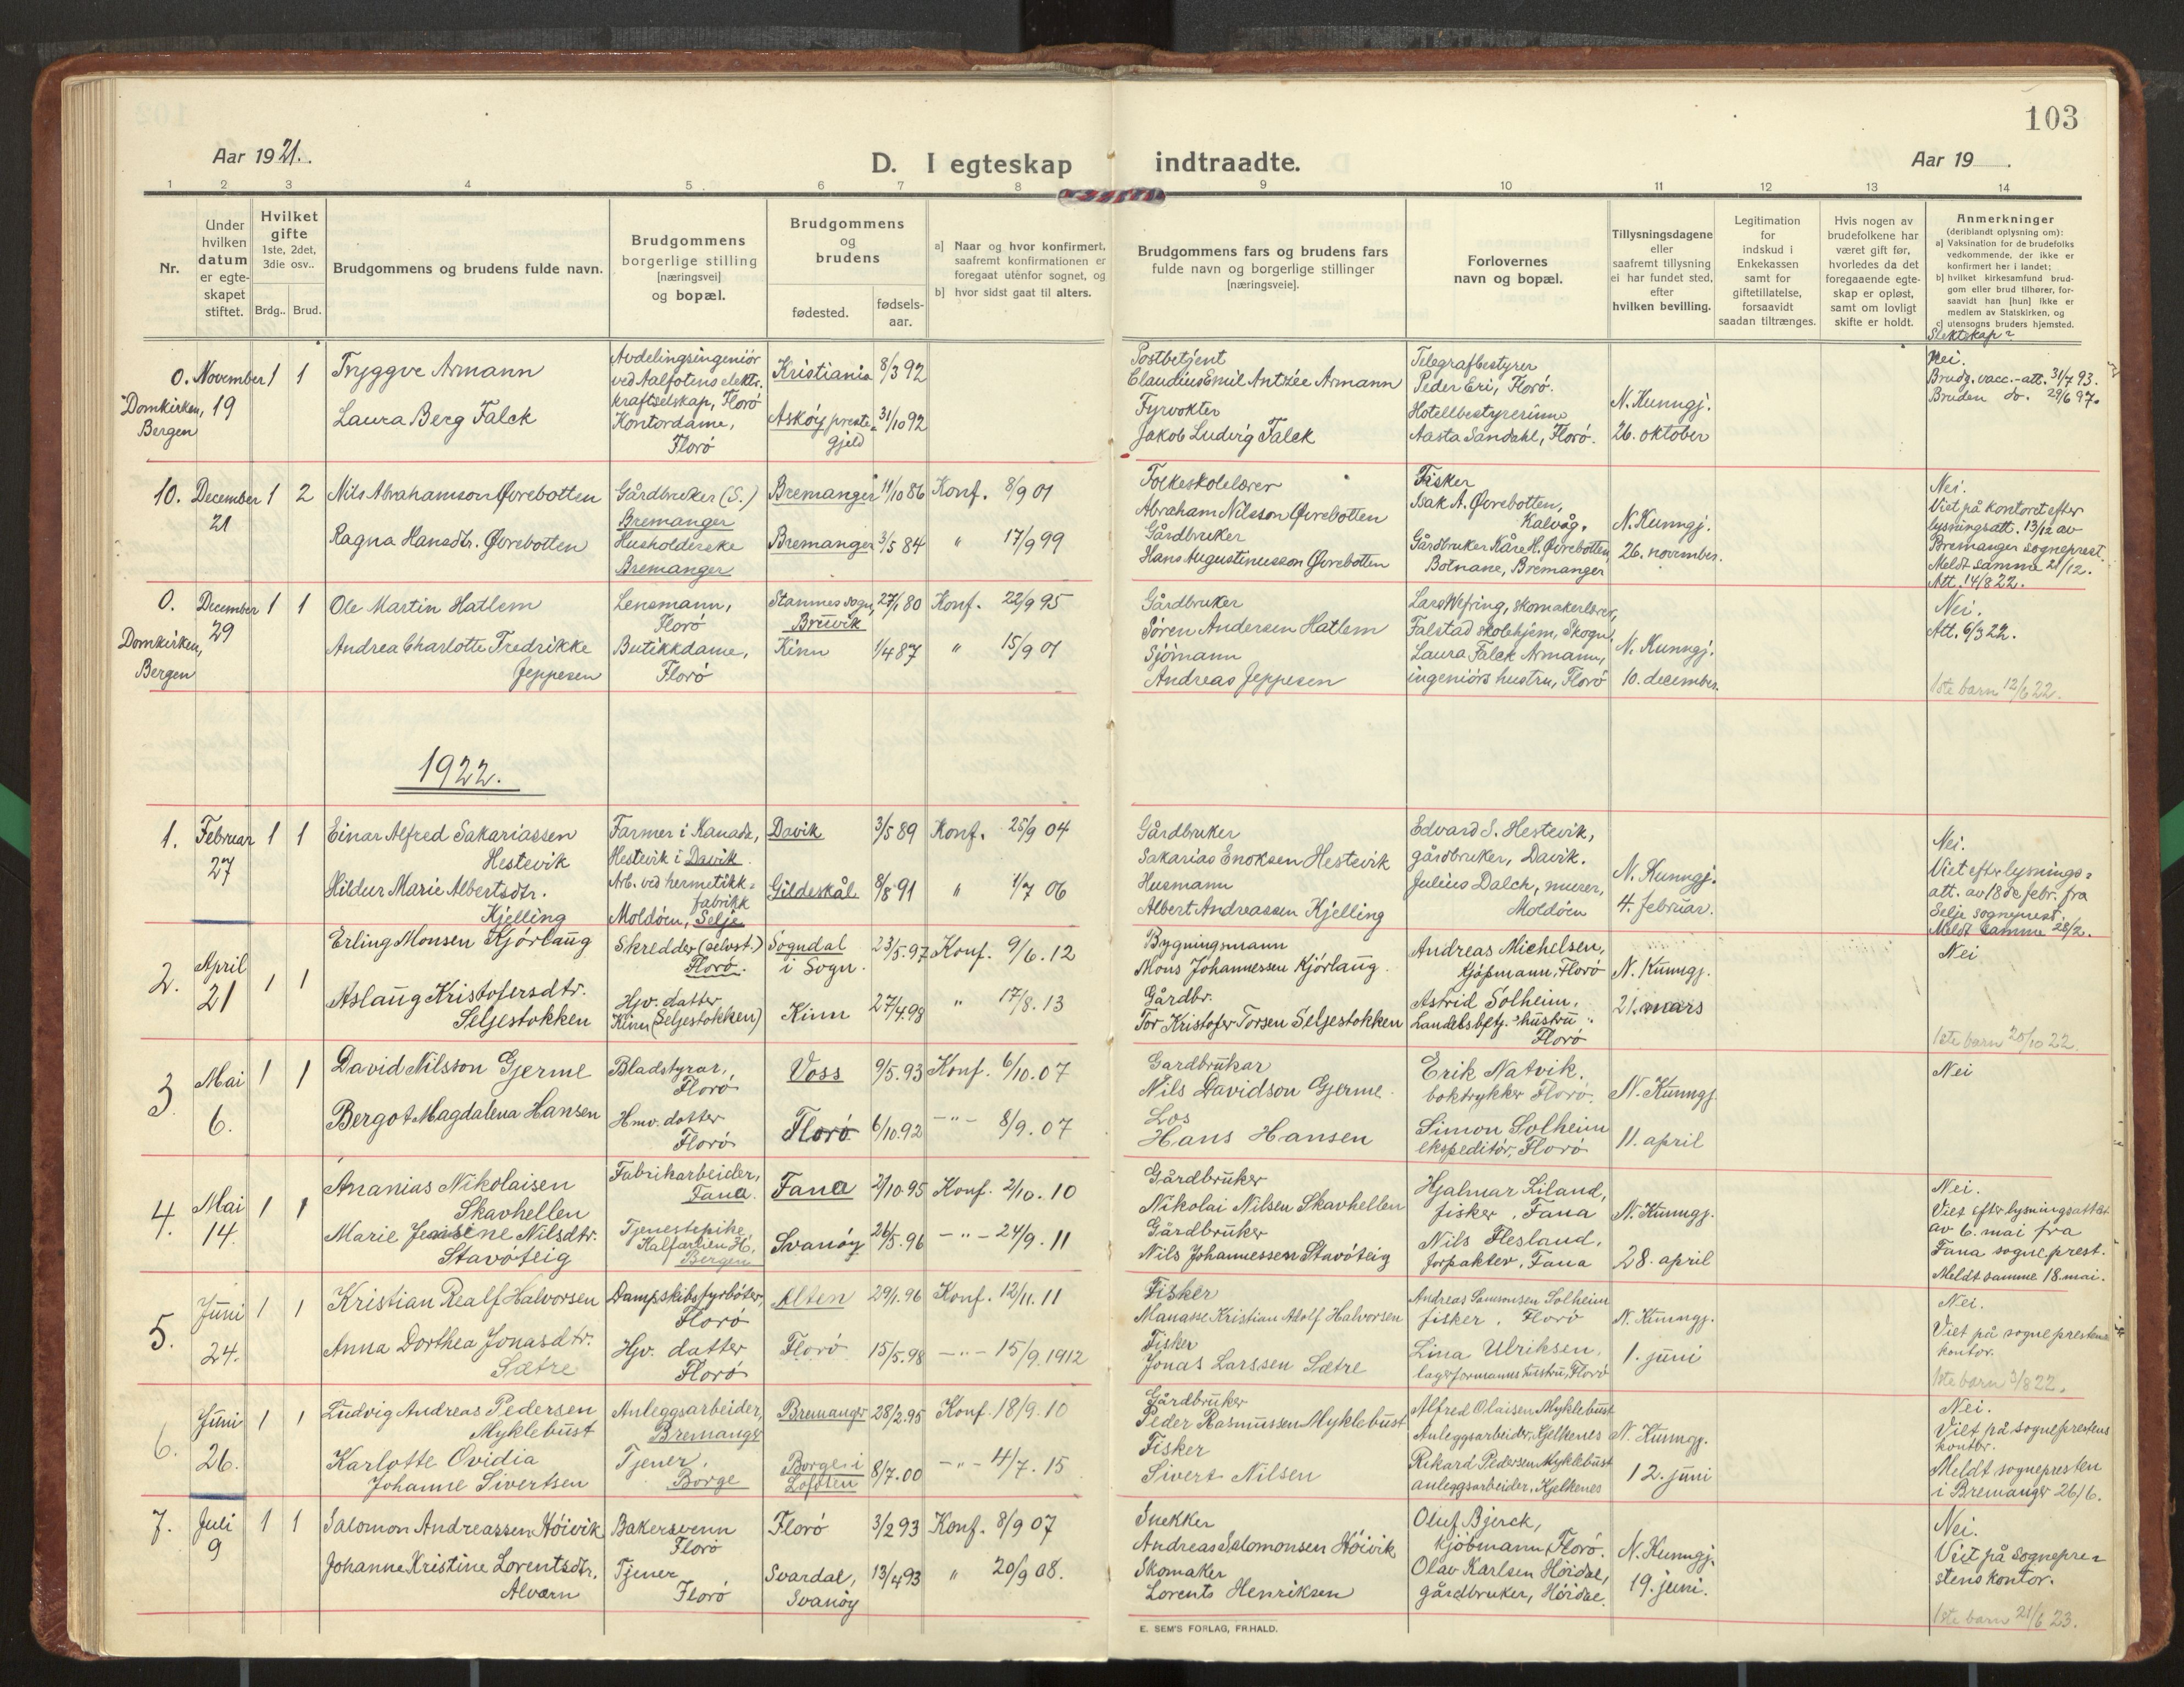 103
Aar 1921.
D. I egteskap indtraadte.
Aar 19 .
1 2 3 4 5 6 7 8 9 10 11 12 13 14
Nr.
Under hvilken datum er egte-skapet stiftet.
Hvilket gifte 1ste, 2det, 3die osv..
Brdg.. Brud.
Brudgommens og brudens fulde navn.
Brudgommens borgerlige stilling [næringsvei] og bopæl.
Brudgommens og brudens
fødested. fødsels-aar.
a] Naar og hvor konfirmert, saafremt konfirmationen er foregaat utenfor sognet, og
b] hvor sidst gaat til alters.
Brudgommens fars og brudens fars fulde navn og borgerlige stillinger [næringsveie].
Forlovernes navn og bopæl.
Tillysningsdagene eller saafremt tillysning ei har fundet sted, efter hvilken bevilling.
Legitimation for indskud i Enkekassen samt for giftetillatelse, forsaavidt saadan tiltrænges.
Hvis nogen av brudefolkene har været gift før, hvorledes da det foregaaende egte-skap er opløst, samt om lovligt skifte er holdt.
Anmerkninger (deriblandt oplysning om):
a] Vaksination for de brudefolks vedkommende, der ikke er konfirmert her i landet;
b] hvilket kirkesamfund brud-gom eller brud tilhører, for-saavidt han [hun] ikke er medlem av Statskirken, og
c] utensogns bruders hjemsted.
Slektskap?
0. November 19 Domkirken, Bergen
1 1
Tryggve Armann
Laura Berg Falck
Avdelingsingeniör
ved Aalfotens elektr.
kraftselskap, Florö
Kontordame,
Florö
Kristiania 8/3 92
Asköy preste-gjeld 31/10 92
Postbetjent
Claudius Emil Antzée Armann
Fyrvokter
Jakob Ludvig Falck
Telegrafbestyrer
Peder Eri, Florö.
Hotellbestyrerinne
Aasta Sandahl, Florö.
N. Kunngj.
26. oktober
Nei.
Brudg. vacc.-att. 31/7 93.
Bruden do. 29/6 97.
10. December 21
1 2
Nils Abrahamson Øvrebotten
Ragna Hansdtr. Øvrebotten
Gårdbruker (S.)
Bremanger
Husholderske
Bremanger
Bremanger 11/10 86 Konf. 8/9 01
Bremanger 3/5 84 " 17/9 99
Folkeskolelærer
Abraham Nilsson Øvrebotten
Gårdbruker
Hans Augustinusson Øvrebotten
Fisker
Isak A. Øvrebotten,
Kalvåg.
Gårdbruker Kåre H. Øvrebotten,
Botnane, Bremanger
N. Kunngj.
26. november.
Nei.
Viet på kontoret efter
lysningsatt. 13/12 av
Bremanger sogneprest.
Meldt samme 21/12.
Att. 14/8 22.
0. December 29 Domkirken, Bergen
1 1
Ole Martin Hatlem
Andrea Charlotte Fredrikke
Jeppesen
Lensmann,
Florö
Butikkdame,
Florö
Stamnes sogn,
Bruvik 27/1 80 Konf. 22/9 95
Kinn 1/4 87 " 15/9 01
Gårdbruker
Søren Andersen Hatlem
Sjömann
Andreas Jeppesen
Lars Wefring, skomakerlærer,
Falstad skolehjem, Skogn.
Laura Falck Armann,
ingeniörs hustru, Florö
N. Kunngj.
10. december.
Nei.
Att. 6/3 22.
1ste barn 12/6 22.
1922.
1. Februar 27
1 1
Einar Alfred Sakariassen
Hestevik
Hildur Marie Albertsdtr.
Kjelling
Farmer i Kanada,
Hestevik i Davik.
Arb. ved hermetikk-
fabrikk
Moldöen, Selje
Davik 3/5 89 Konf. 25/9 04
Gildeskål 8/8 91 " 1/7 06
Gårdbruker
Sakarias Enoksen Hestevik
Husmann
Albert Andreassen Kjelling
Edvard S. Hestevik,
gårdbruker, Davik.
Julius Dalch, murer,
Moldöen
N. Kunngj.
4. februar.
Nei.
Viet efter lysnings-
att. av 18de febr. fra
Selje sogneprest.
Meldt samme 28/2.
2. April 21
1 1
Erling Monsen Kjörlaug
Aslaug Kristofersdtr.
Seljestokken
Skredder (selvst.)
Florö.
Hjv. datter
Kinn (Seljestokken)
Sogndal
i Sogn. 23/5.97 Konf. 9/6.12
Kinn 27/4.98 " 17/8.13
Bygningsmann
Mons Johannessen Kjörlaug.
Gårdbr.
Tor Kristofer Torsen Seljestokken
Andreas Michelsen,
kjöpmann, Florö
Astrid Solheim,
Landelsbetj. hustru.
Florö
N. Kunngj.
21. mars
Nei
1ste barn 20/10 22.
3. Mai 6.
1 1
David Nilsson Gjerme
Bergot Magdalena Hansen
Bladstyrar,
Florö
Hmv. dotter
Florö
Voss 9/5.93 Konf. 6/10.07
Florö 6/10.92 -"- 8/9.07
Gardbrukar
Nils Davidson Gjerme.
Los
Hans Hansen
Erik Natvik.
boktrykker Florö.
Simon Solheim
ekspeditör, Florö
N. Kunngj.
11. april
Nei
4. Mai 14.
1 1
Ananias Nikolaisen
Skavhellen
Marie Jensine Nilsdtr.
Stavöteig
Fabrikarbeider,
Fana.
Tjenestepike
Kalfarlien
Bergen
Fana 2/10.95 Konf. 2/10.10
Svanöy 26/5.96 -"- 24/9.11
Gårdbruker
Nikolai Nilsen Skavhellen
Gårdbruker
Nils Johannessen Stavöteig
Hjalmar Liland,
fisker, Fana
Nils Flesland,
forpakter, Fana
N. Kunngj.
28. april
Nei.
Viet efter lysningsattest
av 6. mai fra
Fana sogneprest.
Meldt samme 18. mai.
5. Juni 24.
1 1
Kristian Realf Halvorsen
Anna Dorthea Jonasdtr.
Sætre
Dampskibsfyrböter,
Florö
Hjv. datter
Florö
Alten 29/1.96 Konf. 12/11.11
Florö 15/5.98 -"- 15/9.1912
Fisker
Manasse Kristian Adolf Halvorsen
Fisker
Jonas Larssen Sætre
Andreas Samsonsen Solheim
fisker, Florö
Lina Ulriksen,
lagerformanns hustru, Florö
N. Kunngj.
1. juni
Nei.
Viet på sogneprestens
kontor.
1ste barn 3/8 22.
6. Juni 26.
1 1
Ludvig Andreas Pedersen
Myklebust
Karlotte Ovidia
Johanne Sivertsen
Anleggsarbeider,
Bremanger
Tjener,
Borge
Bremanger 28/2.95 Konf. 18/9.10
Borge i
Lofoten 8/7.00 -"- 4/7.15
Gårdbruker
Peder Rasmussen Myklebust
Fisker
Sivert Nilsen
Alfred Olaisen Myklebust
Anleggsarbeider, Kjelkenes
Rikard Pedersen Myklebust
anleggsarbeider, Kjelkenes
N. Kunngj.
12. juni
Nei.
Viet på sogneprestens
kontor.
Meldt sognepresten
i Bremanger 26/6.
7. Juli 9
1 1
Salomon Andreassen Höivik
Johanne Kristine Lorentsdtr.
Alværn
Bakersvenn
Florö
Tjener
Florö
Florö 3/2 93 Konf. 8/9 07
Svardal,
Svanöy 13/4 93 " 20/9 08.
Snekker
Andreas Salomonsen Höivik
Skomaker
Lorents Henriksen
Oluf Bjerck,
kjöbmann, Florö.
Olav Karlsen Höidal,
gårdbruker, Höidal.
N. Kunngj.
19. juni.
Nei.
Viet på sognepre-
stens kontor.
1ste barn 21/6 23.
E. SEM'S FORLAG, FR.HALD.